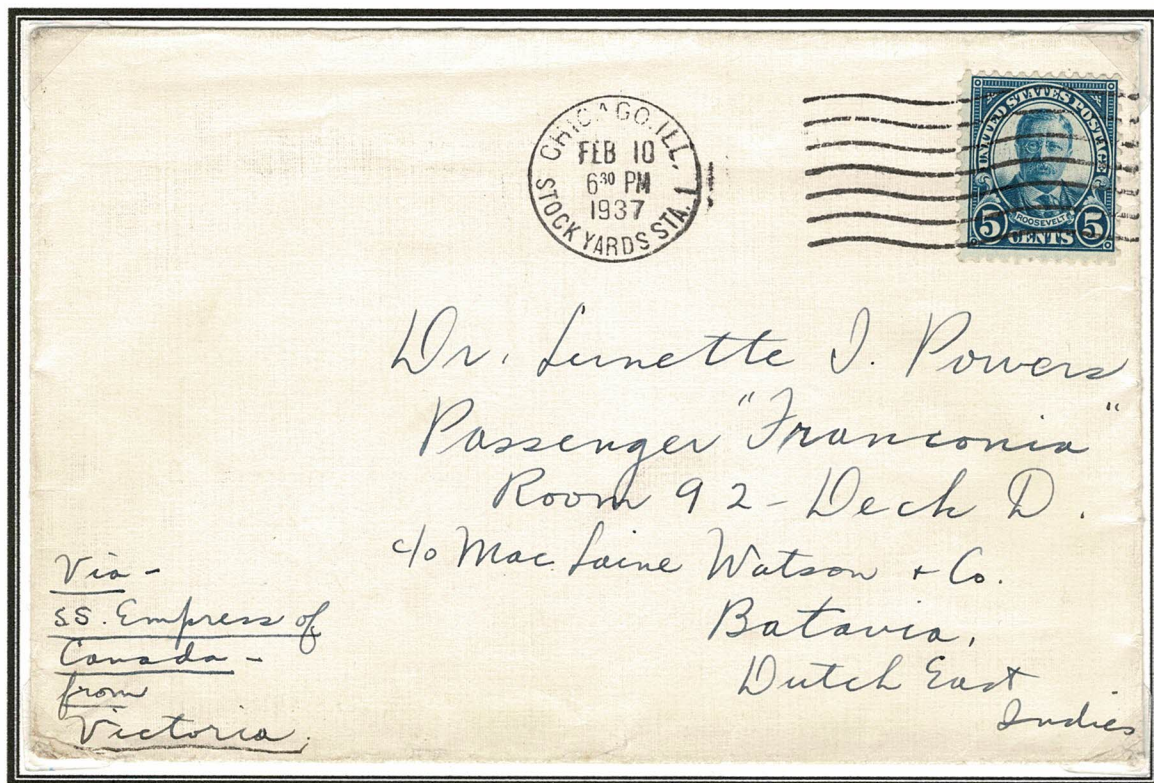 CHICAGO, ILL.
FEB 10
6³⁰ PM
1937
STOCK YARDS STA. 1
UNITED STATES POSTAGE
ROOSEVELT
5 CENTS 5
Dr. Lunette I. Powers
Passenger "Franconia"
Room 92 - Deck D.
c/o Mac Laine Watson + Co.
Batavia,
Dutch East
Indies
Via -
SS. Empress of
Canada -
from
Victoria.